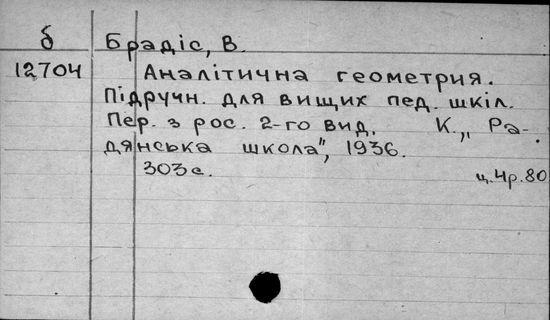 б
Брадіс, В.
12704
Аналітична геометрия.
Підручн. для вищих пед. шкіл.
Пер. з рос. 2-го вид. К., „Ра-
дянська школа", 1936.
303 с.
ц. 4 р. 80